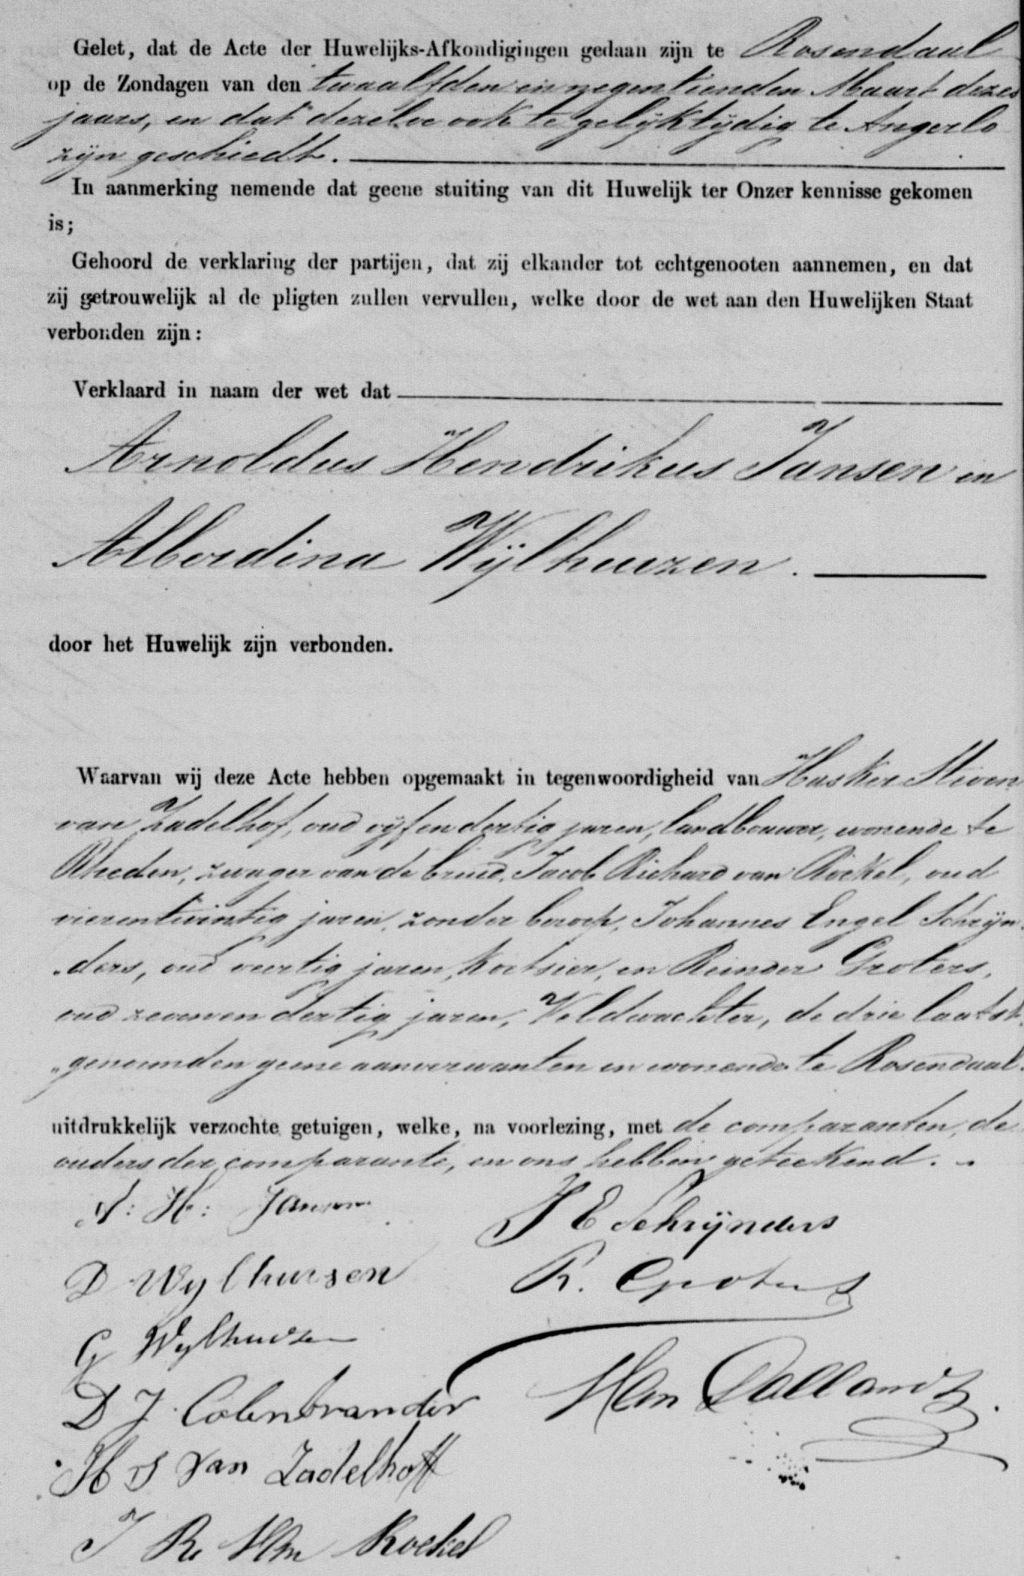 Gelet, dat de Acte der Huwelijks-Afkondigingen gedaan zijn te Rosendaal
op de Zondagen van den twaalfden en negentienden Maart dezes
jaars, en dat dezelve ook te gelijktijdig te Angerlo
zijn geschiedt.
In aanmerking nemende dat geene stuiting van dit Huwelijk ter Onzer kennisse gekomen
is;
Gehoord de verklaring der partijen, dat zij elkander tot echtgenooten aannemen, en dat
zij getrouwelijk al de pligten zullen vervullen, welke door de wet aan den Huwelijken Staat
verbonden zijn:
Verklaard in naam der wet dat
Arnoldus Hendrikus Jansen en
Alberdina Wijlhuizen.
door het Huwelijk zijn verbonden.
Waarvan wij deze Acte hebben opgemaakt in tegenwoordigheid van Steven
van Zadelhof, oud vijfendertig jaren, landbouwer, wonende te
Rheden, zwager van de bruid, Jacob Richard van Röckel, oud
vierentwintig jaren, zonder beroep, Johannes Engel Schrijn-
ders, oud veertig jaren, koetsier, en Reinder Groters,
oud zevenendertig jaren, Veldwachter, de drie laatst-
genoemden geene aanverwanten en wonende te Rosendaal
uitdrukkelijk verzochte getuigen, welke, na voorlezing, met de comparanten, de
ouders der comparante, en ons hebben geteekend.
A: H: Jansen
J E Schrijnders
D Wylhuisen
R. Groters
G Wylhuizen
D J Colenbrander
H S van Zadelhoff
J R Van Röckel